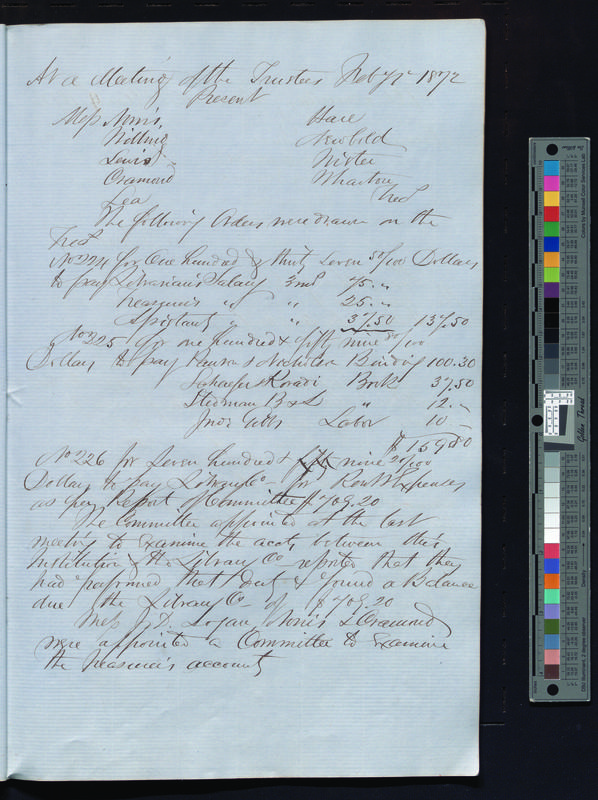 At a Meeting of the Trustees Feby 1872
Present
Mess Norris, Hare
Willing Newbold
Lewis Wister
Cramond Wharton
Lea Treas
The following Orders were drawn on the
Treas
No 224 for One hundred & thirty Seven 50/100 Dollars
to pay Librarians Salary 3 mos 75 "
Treasurers " " 25 "
Assistants " " 37.50 137.50
No 225 for one hundred & fifty nine 80/100
Dollars to pay Pawson & Nicholson Binding 100.30
Schaefer & Koradi Books 37.50
Stedman B & L " 12 "
Jno Gibbs Labor 10
$159.80
No 226 for Seven hundred & nine 20/100
Dollars to pay Library Co for Rent & Expenses
as per Report of Committee $709.20
The Committee appointed at the last
meeting to examine the accts between this
Institution & the Library Co reported that they
had performed that duty & found a Balance
due the Library Co of $709.20
Mess J. D. Logan, Norris & Cramond
were appointed a Committee to Examine
the Treasurers accounts